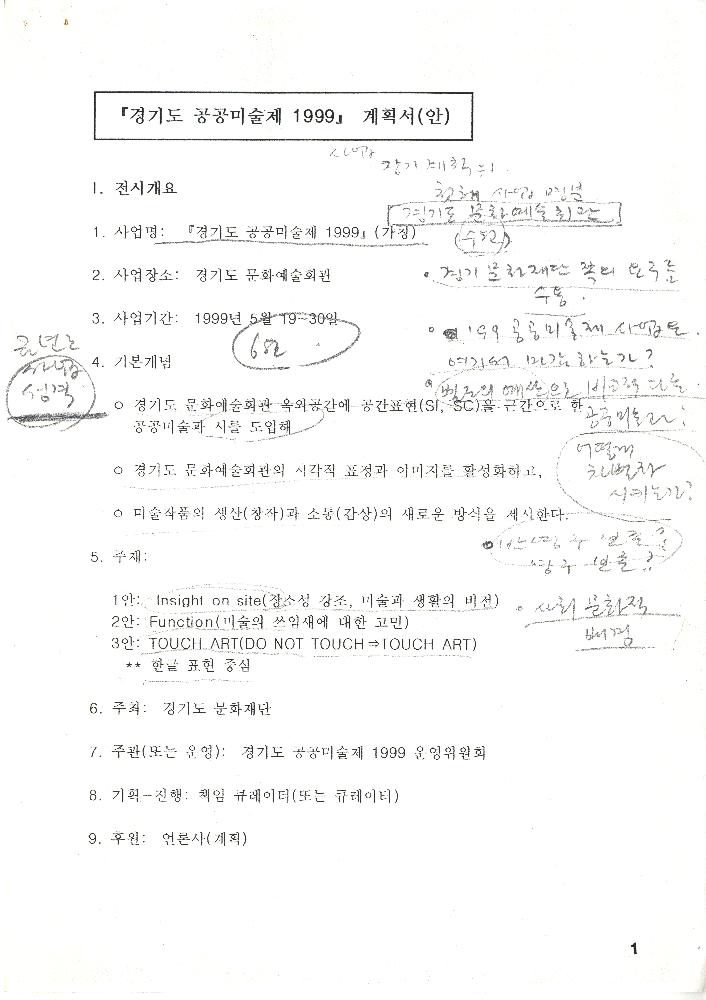 『경기도 공공미술제 1999』 계획서(안)
사업
장기계획
I. 전시개요
사업
경기도 문화예술회관
1. 사업명: 『경기도 공공미술제 1999』(가칭)
(수원)
2. 사업장소: 경기도 문화예술회관
• 경기문화재단 쪽의 요구를
수용.
3. 사업기간: 1999년 5월 19-30일
6월
• '99 공공미술제 사업은
여기서 마감하는가?
금년도
사업
성격
4. 기본개념
• 별도의 예산으로
공공미술과?
o 경기도 문화예술회관 옥외공간에 공간표현(SI, SC)을 근간으로 한
공공미술과 시를 도입해
어떻게
차별화
시키는가?
o 경기도 문화예술회관의 시각적 표정과 이미지를 활성화하고,
o 미술작품의 생산(창작)과 소통(감상)의 새로운 방식을 제시한다.
5. 주제:
1안: Insight on site(장소성 강조, 미술과 생활의 비전)
2안: Function(미술의 쓰임새에 대한 고민)
3안: TOUCH ART(DO NOT TOUCH⇒TOUCH ART)
** 한글 표현 중심
• 사회 문화적
배경
6. 주최: 경기도 문화재단
7. 주관(또는 운영): 경기도 공공미술제 1999 운영위원회
8. 기획-진행: 책임 큐레이터(또는 큐레이터)
9. 후원: 언론사(계획)
1